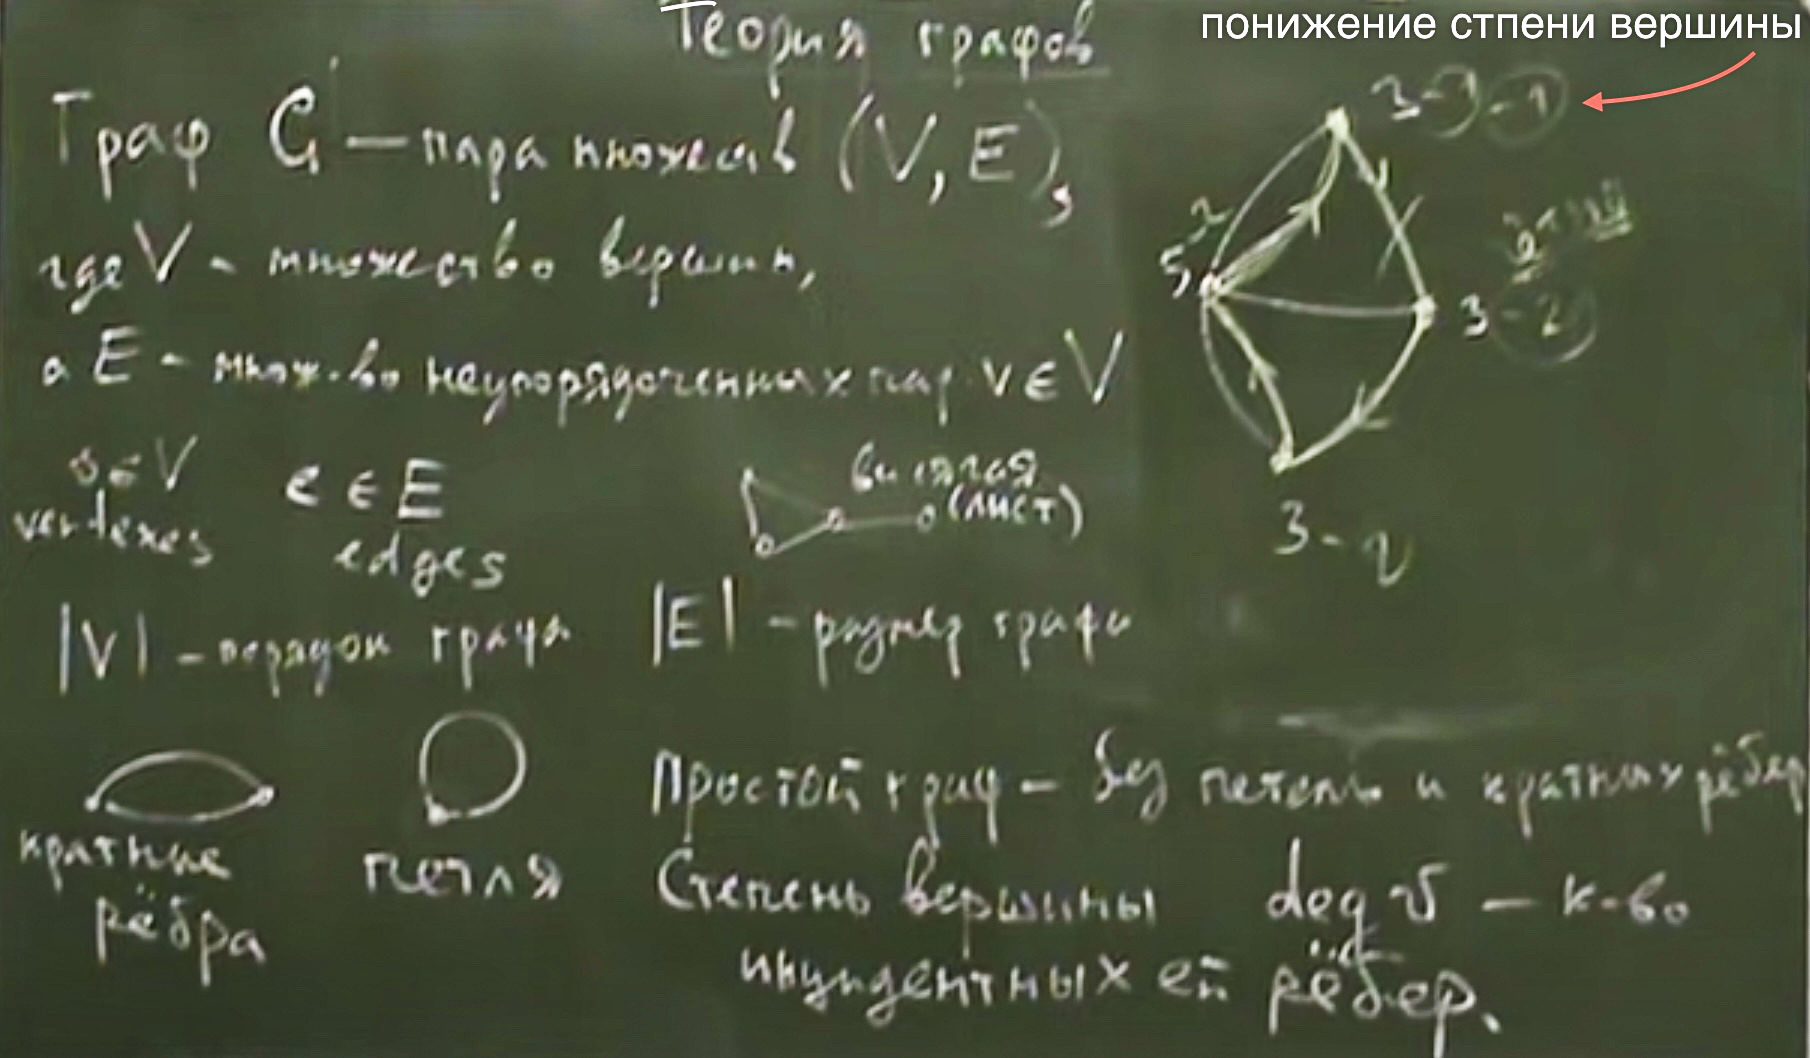 Теория графов
понижение стпени вершины
Граф G — пара множеств (V, E),
где V - множество вершин,
а E - множ-во неупорядоченных пар v ∈ V
v ∈ V e ∈ E
vertexes edges
висячая
(лист)
|V| - порядок графа |E| - размер графа
3 - 1 - 1
2
5
3 - 2
3 - 2
кратные
рёбра
петля
Простой граф - без петель и кратных рёбер
Степень вершины deg v — к-во
инцидентных ей рёбер.